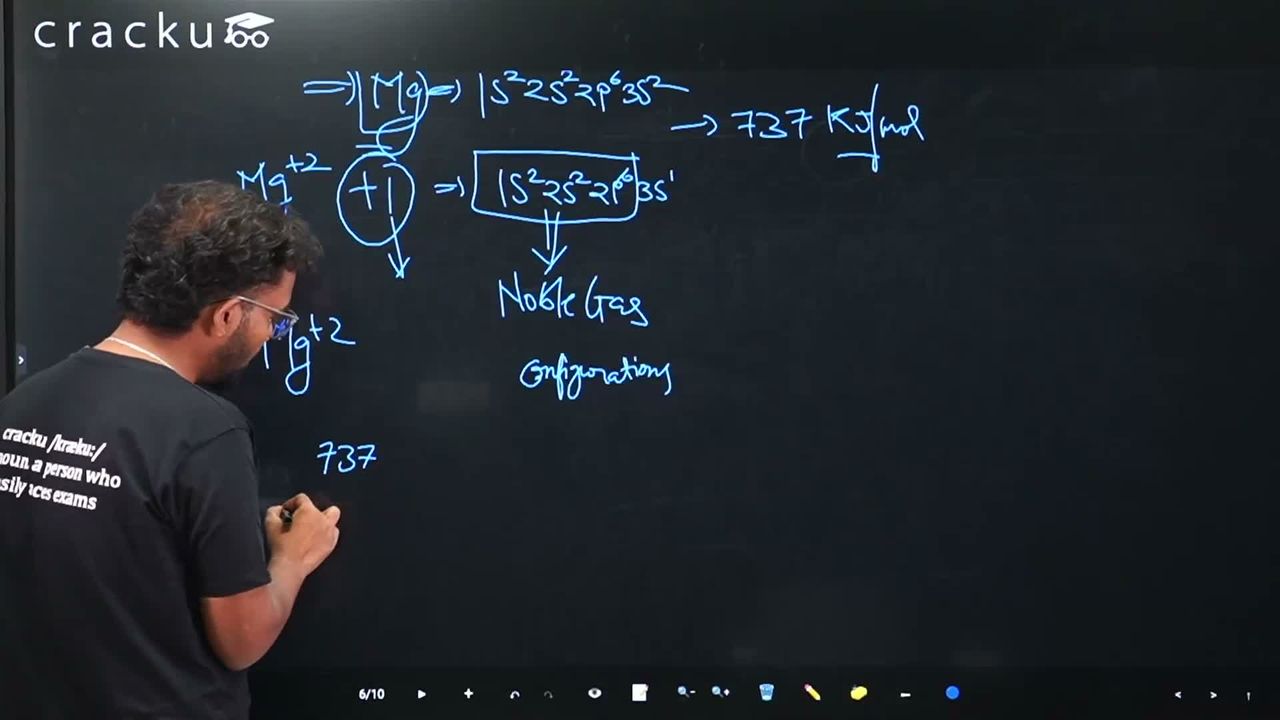 cracku
⇒) Mg ⇒ 1S² 2S² 2P⁶ 3S²
→ 737 KJ/mol
Mg⁺² +1 ⇒ 1S² 2S² 2P⁶ 3S¹
Noble Gas
Mg⁺²
Configurations
737
cracku /kræku:/
noun. a person who
aces exams
6/10